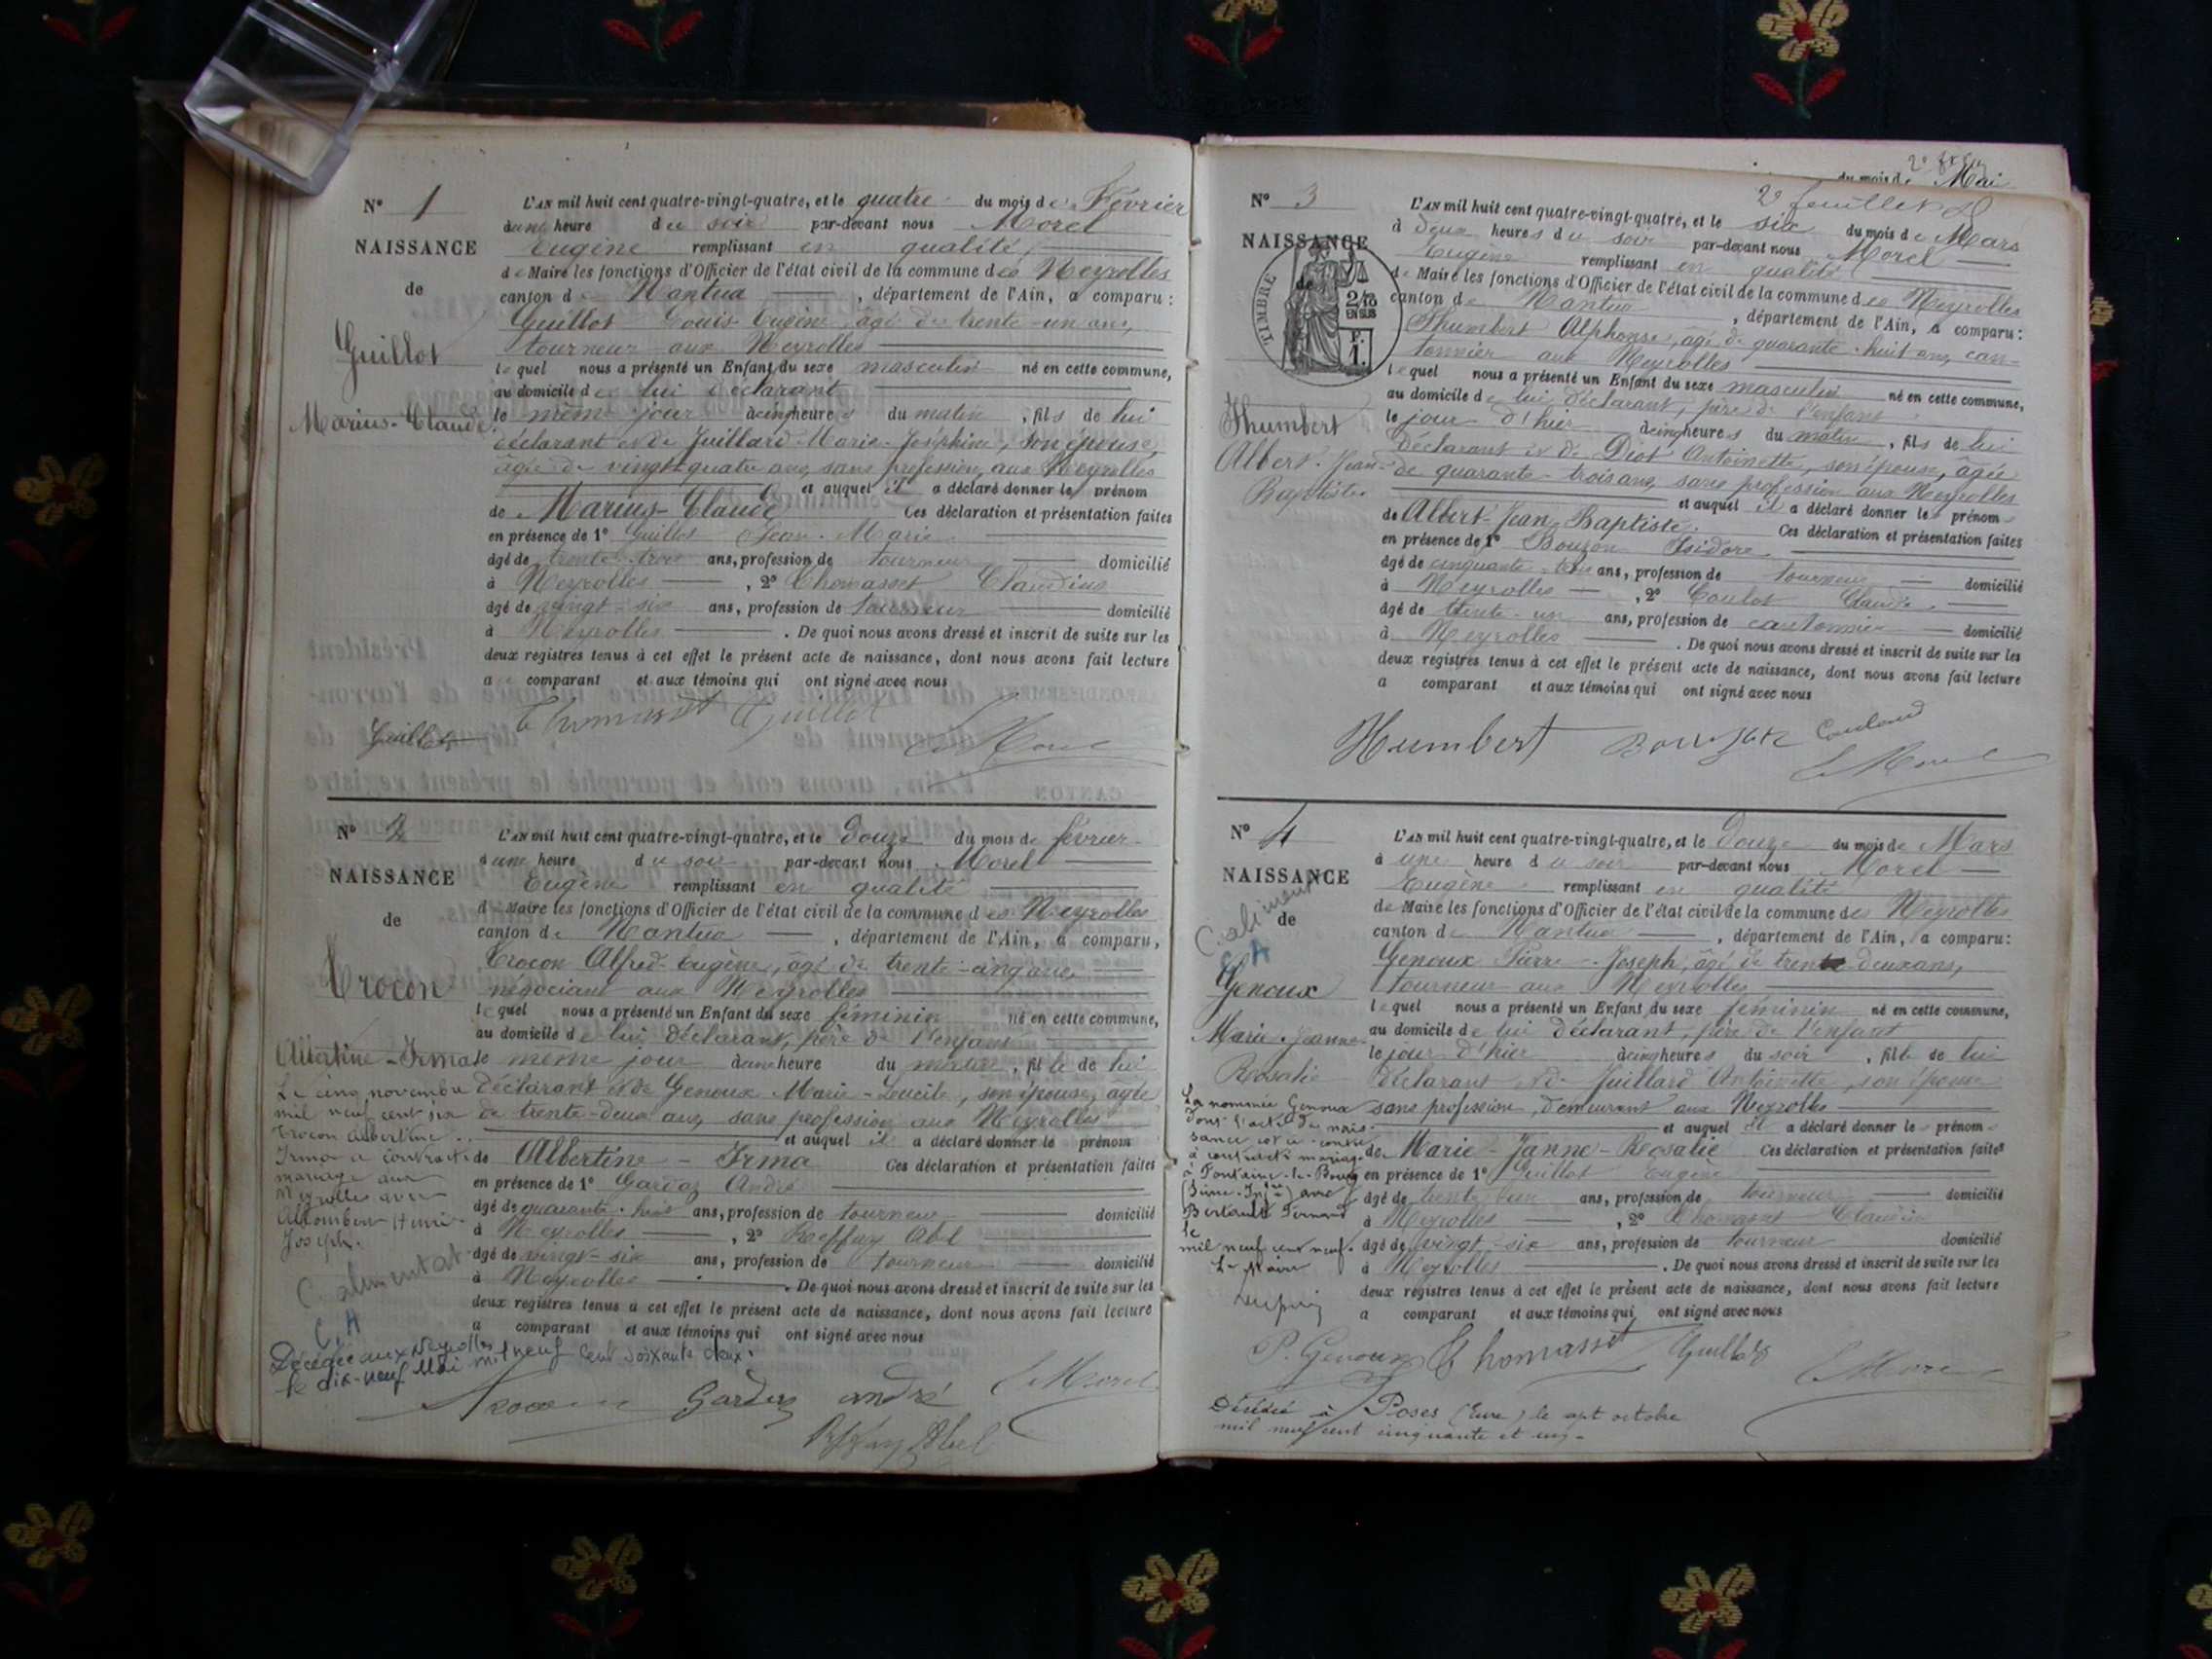 N° 1
NAISSANCE
de
Guillot
Marius-Claude
L'AN mil huit cent quatre-vingt-quatre, et le quatre du mois de Février
à une heure du soir par-devant nous Morel
Eugène remplissant en qualité
de Maire les fonctions d'Officier de l'état civil de la commune des Neyrolles
canton de Nantua, département de l'Ain, a comparu :
Guillot Louis-Eugène, âgé de trente-un ans,
tourneur aux Neyrolles
lequel nous a présenté un Enfant du sexe masculin né en cette commune,
au domicile de lui déclarant
le même jour à cinq heures du matin, fils de lui
déclarant et de Juillard Marie-Joséphine, son épouse,
âgée de vingt-quatre ans, sans profession, aux Neyrolles
et auquel il a déclaré donner le prénom
de Marius-Claude Ces déclaration et présentation faites
en présence de 1° Guillot Jean-Marie
âgé de trente-trois ans, profession de tourneur domicilié
à Neyrolles, 2° Thomasset Claudius
âgé de vingt-six ans, profession de tourneur domicilié
à Neyrolles. De quoi nous avons dressé et inscrit de suite sur les
deux registres tenus à cet effet le présent acte de naissance, dont nous avons fait lecture
au comparant et aux témoins qui ont signé avec nous
Guillot Thomasset Guillot
E. Morel
N° 2
NAISSANCE
de
Crocon
Albertine-Irma
L'AN mil huit cent quatre-vingt-quatre, et le douze du mois de février
à une heure du soir par-devant nous Morel
Eugène remplissant en qualité
de Maire les fonctions d'Officier de l'état civil de la commune des Neyrolles
canton de Nantua, département de l'Ain, a comparu,
Crocon Alfred-Eugène, âgé de trente-cinq ans
négociant aux Neyrolles
lequel nous a présenté un Enfant du sexe féminin né en cette commune,
au domicile de lui déclarant, père de l'enfant
le même jour à une heure du matin, fille de lui
déclarant et de Genoux Marie-Lucile, son épouse, âgée
de trente-deux ans, sans profession aux Neyrolles
et auquel il a déclaré donner le prénom
de Albertine-Irma Ces déclaration et présentation faites
en présence de 1° Gardaz André
âgé de quarante-huit ans, profession de tourneur domicilié
à Neyrolles, 2° Reffay Abel
âgé de vingt-six ans, profession de tourneur domicilié
à Neyrolles. De quoi nous avons dressé et inscrit de suite sur les
deux registres tenus à cet effet le présent acte de naissance, dont nous avons fait lecture
a comparant et aux témoins qui ont signé avec nous
Le cinq novembre
mil neuf cent six
Crocon Albertine
Irma a contracté
mariage aux
Neyrolles avec
Allombert Henri
Joseph.
C. alimentat
C. A
Décédée aux Neyrolles
le dix-neuf Mai mil neuf cent soixante deux.
Crocon Gardaz andré E. Morel
Reffay Abel
2e feuillet
N° 3
NAISSANCE
de
TIMBRE
2/10 EN SUS
F. 1.
Humbert
Albert-Jean-
Baptiste
L'AN mil huit cent quatre-vingt-quatre, et le six du mois de Mars
à deux heures du soir par-devant nous Morel
Eugène remplissant en qualité
de Maire les fonctions d'Officier de l'état civil de la commune des Neyrolles
canton de Nantua, département de l'Ain, a comparu :
Humbert Alphonse, âgé de quarante-huit ans, can-
tonnier aux Neyrolles
lequel nous a présenté un Enfant du sexe masculin né en cette commune,
au domicile de lui déclarant, père de l'enfant
le jour d'hier à cinq heures du matin, fils de lui
déclarant et de Diot Antoinette, son épouse, âgée
de quarante-trois ans, sans profession aux Neyrolles
et auquel il a déclaré donner les prénom
de Albert-Jean-Baptiste. Ces déclaration et présentation faites
en présence de 1° Bouzon Isidore
âgé de cinquante-trois ans, profession de tourneur domicilié
à Neyrolles, 2° Claude
âgé de trente-un ans, profession de cantonnier domicilié
à Neyrolles. De quoi nous avons dressé et inscrit de suite sur les
deux registres tenus à cet effet le présent acte de naissance, dont nous avons fait lecture
a comparant et aux témoins qui ont signé avec nous
Humbert
E. Morel
du mois de Mai
N° 4
NAISSANCE
de
C. aliment
C. A
Genoux
Marie-Jeanne-
Rosalie
L'AN mil huit cent quatre-vingt-quatre, et le douze du mois de Mars
à une heure du soir par-devant nous Morel
Eugène remplissant en qualité
de Maire les fonctions d'Officier de l'état civil de la commune des Neyrolles
canton de Nantua, département de l'Ain, a comparu :
Genoux Pierre-Joseph, âgé de trente-deux ans,
tourneur aux Neyrolles
lequel nous a présenté un Enfant du sexe féminin né en cette commune,
au domicile de lui déclarant, père de l'enfant
le jour d'hier à cinq heures du soir, fille de lui
déclarant et de Juillard Antoinette, son épouse
sans profession, demeurant aux Neyrolles
et auquel il a déclaré donner le prénom
de Marie-Janne-Rosalie Ces déclaration et présentation faites
en présence de 1° Guillot Eugène
âgé de trente-un ans, profession de tourneur domicilié
à Neyrolles, 2° Thomasset Claudius
âgé de vingt-six ans, profession de tourneur domicilié
à Neyrolles. De quoi nous avons dressé et inscrit de suite sur les
deux registres tenus à cet effet le présent acte de naissance, dont nous avons fait lecture
a comparant et aux témoins qui ont signé avec nous
La nommée Genoux
dont l'acte de nais-
sance est ci-contre
a contracté mariage
à Fontaine-le-Bourg
(Seine-Infre) avec
Bertault Fernand
le
mil neuf cent neuf.
Le Maire
P. Genoux Thomasset Guillot
E. Morel
Décédée à Poses (Eure) le sept octobre
mil neuf cent cinquante et un.